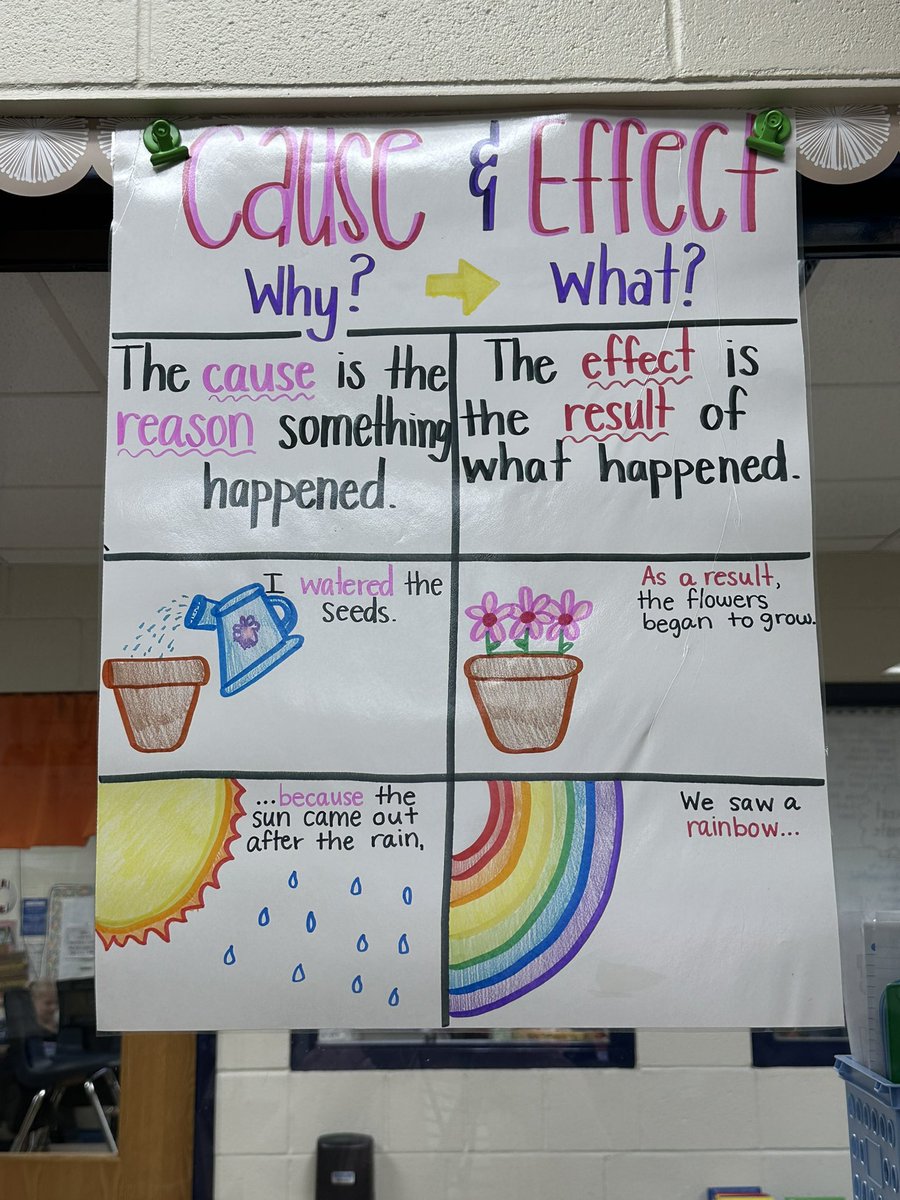 Cause & Effect
Why? → What?
The cause is the
reason something
happened.
The effect is
the result of
what happened.
I watered the
seeds.
As a result,
the flowers
began to grow.
...because the
sun came out
after the rain,
We saw a
rainbow...